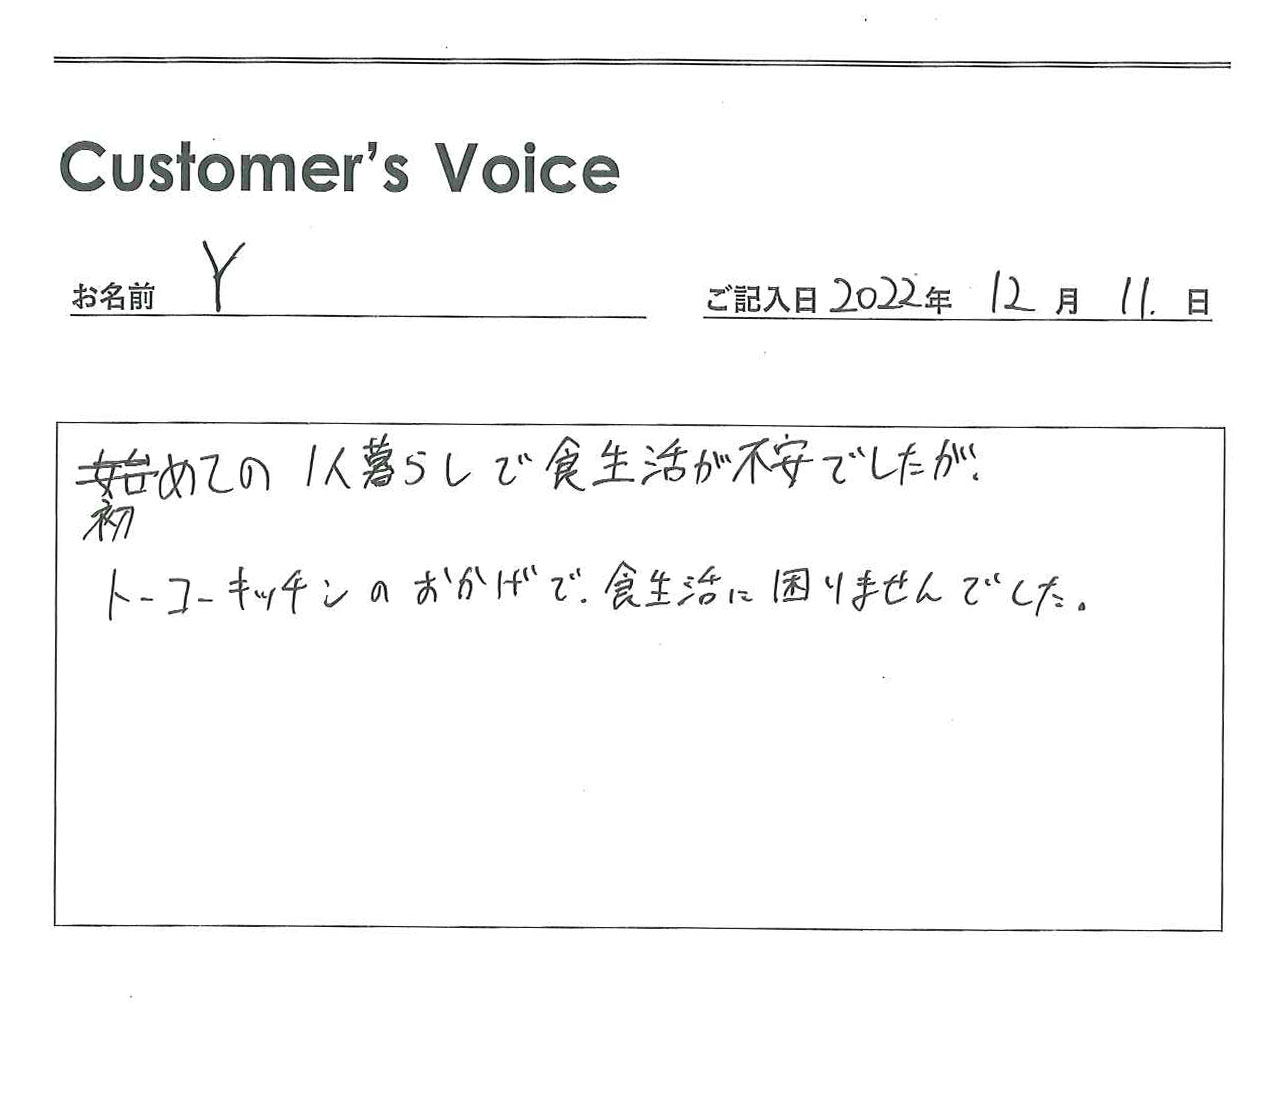 Customer's Voice
お名前 Y
ご記入日 2022年 12月 11.日
始めての1人暮らしで食生活が不安でしたが、
初
トーコーキッチンのおかげで、食生活に困りませんでした。